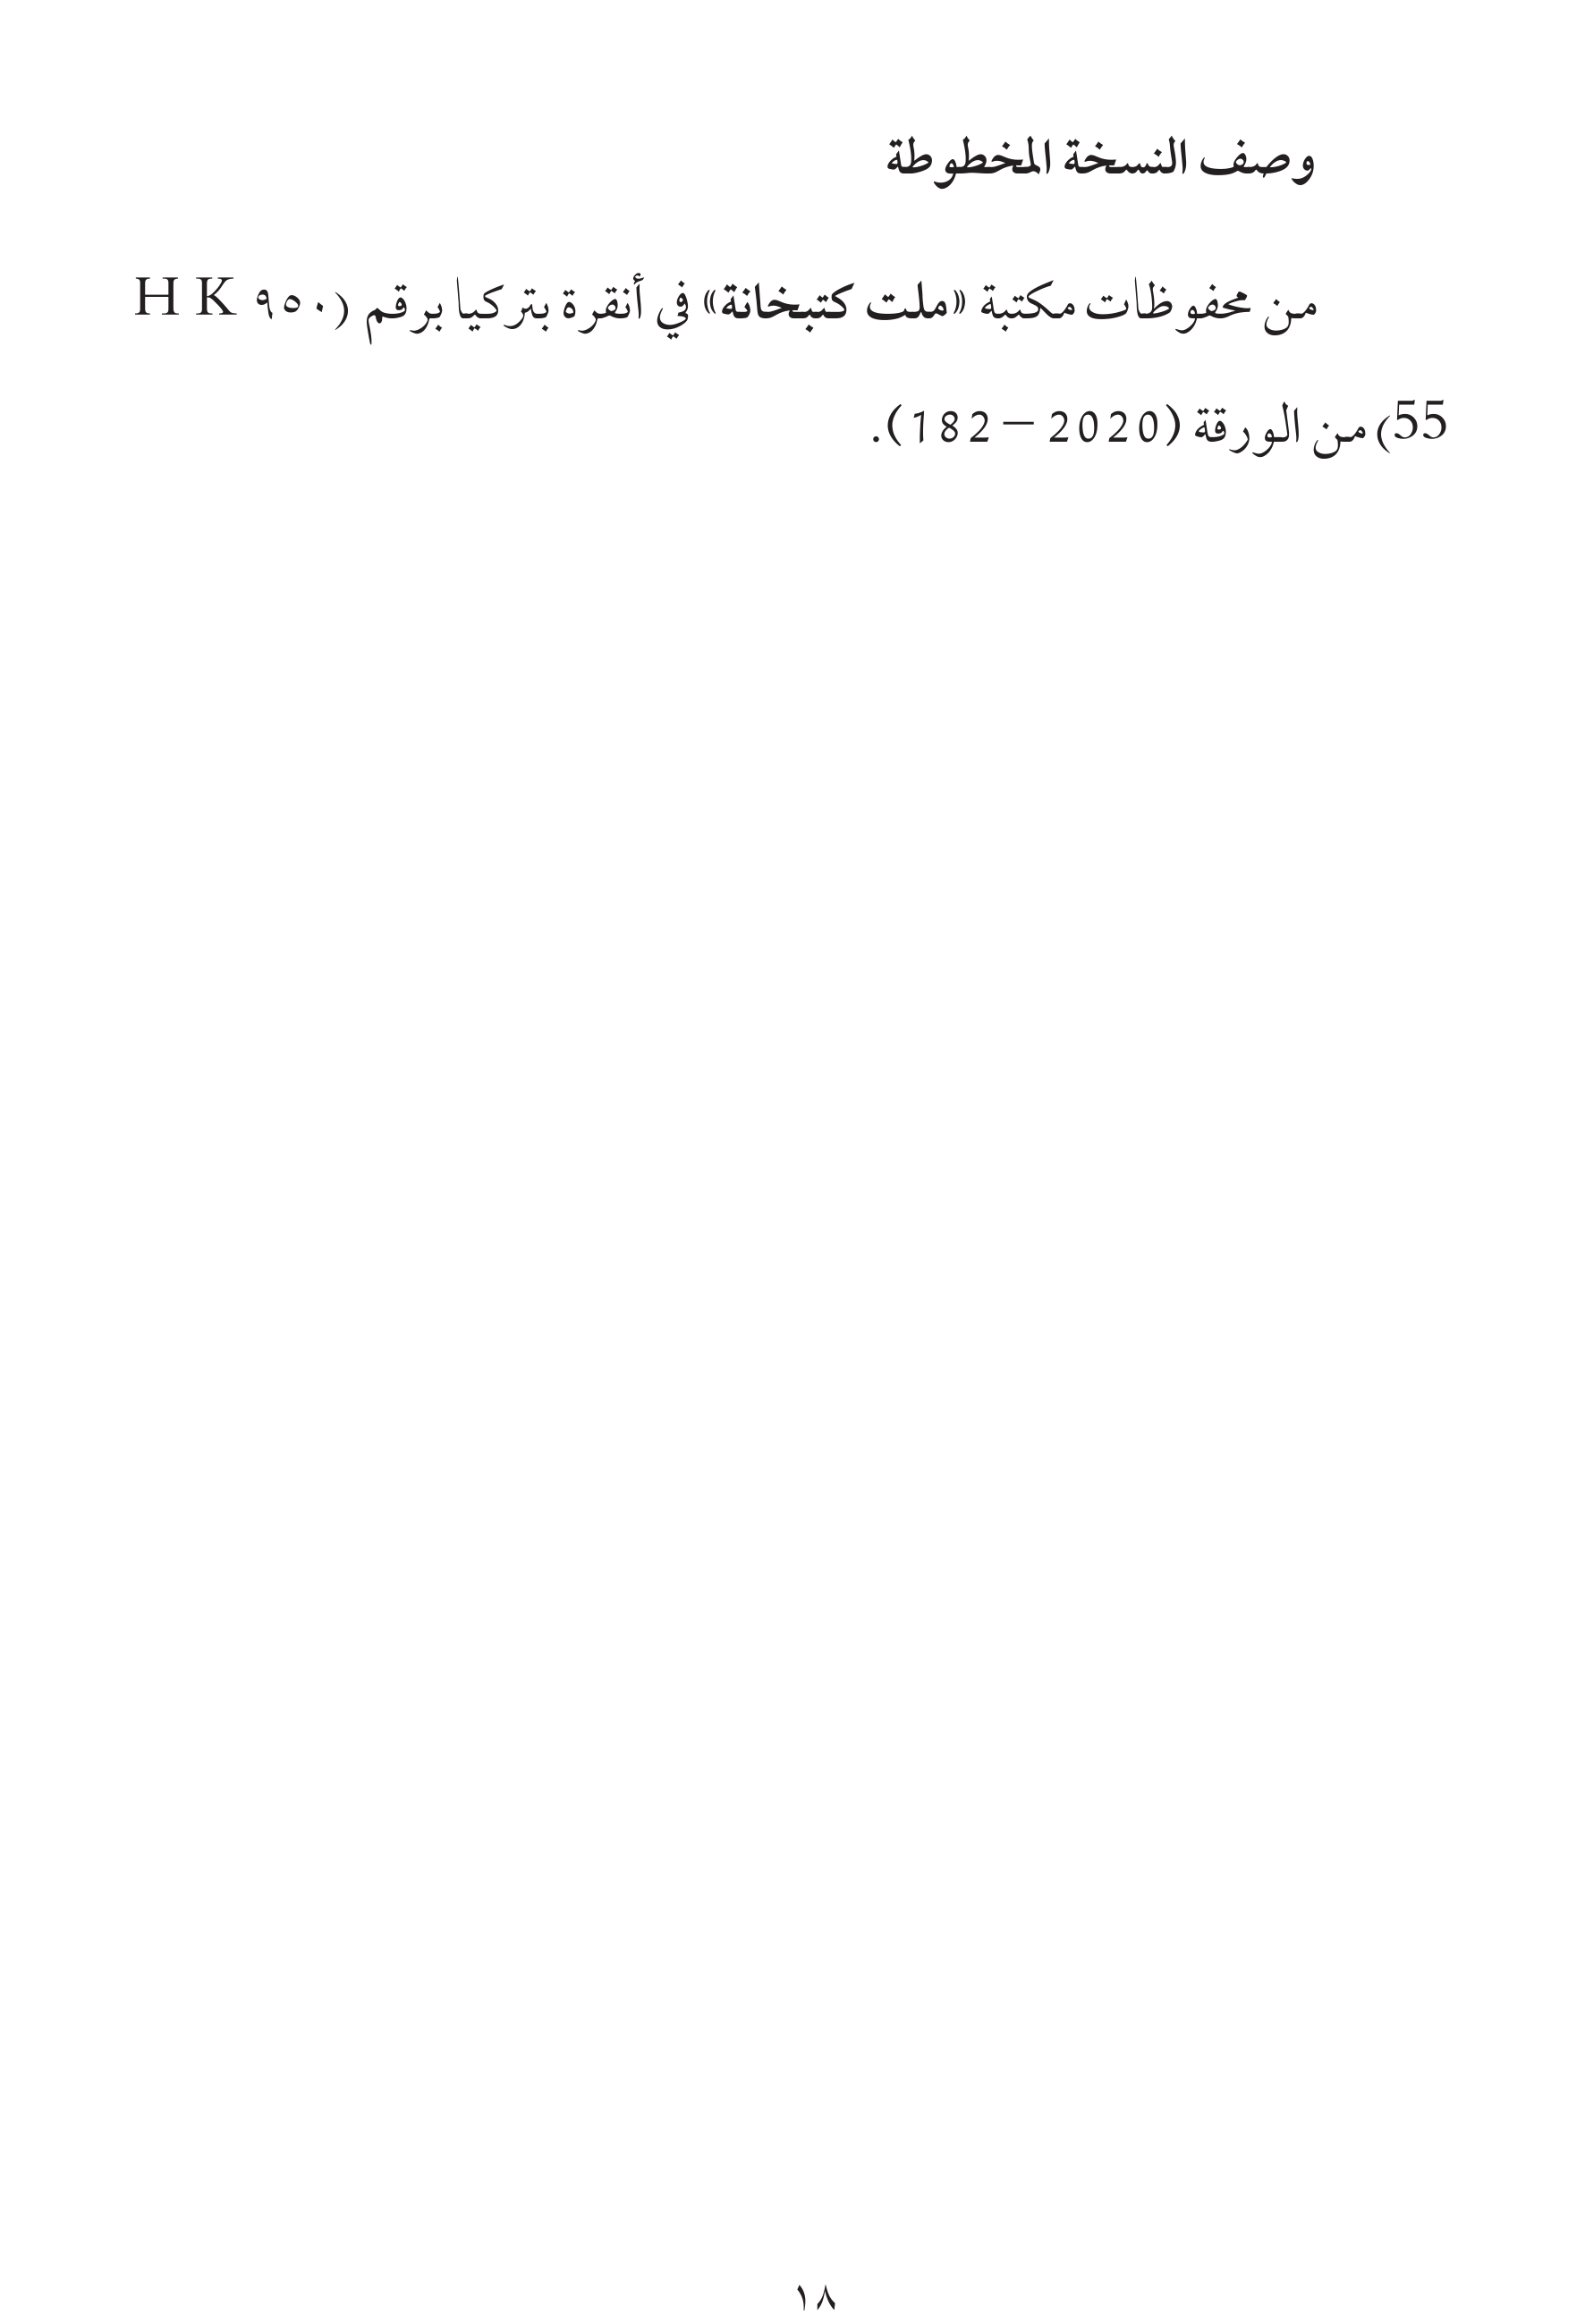 وصف النسخة المخطوطة
من محفوظات مكتبة «ملت كتبخانة» في أنقرة بتركيا برقم (٩٥٠ H K
55) من الورقة (2020 – 182).
١٨